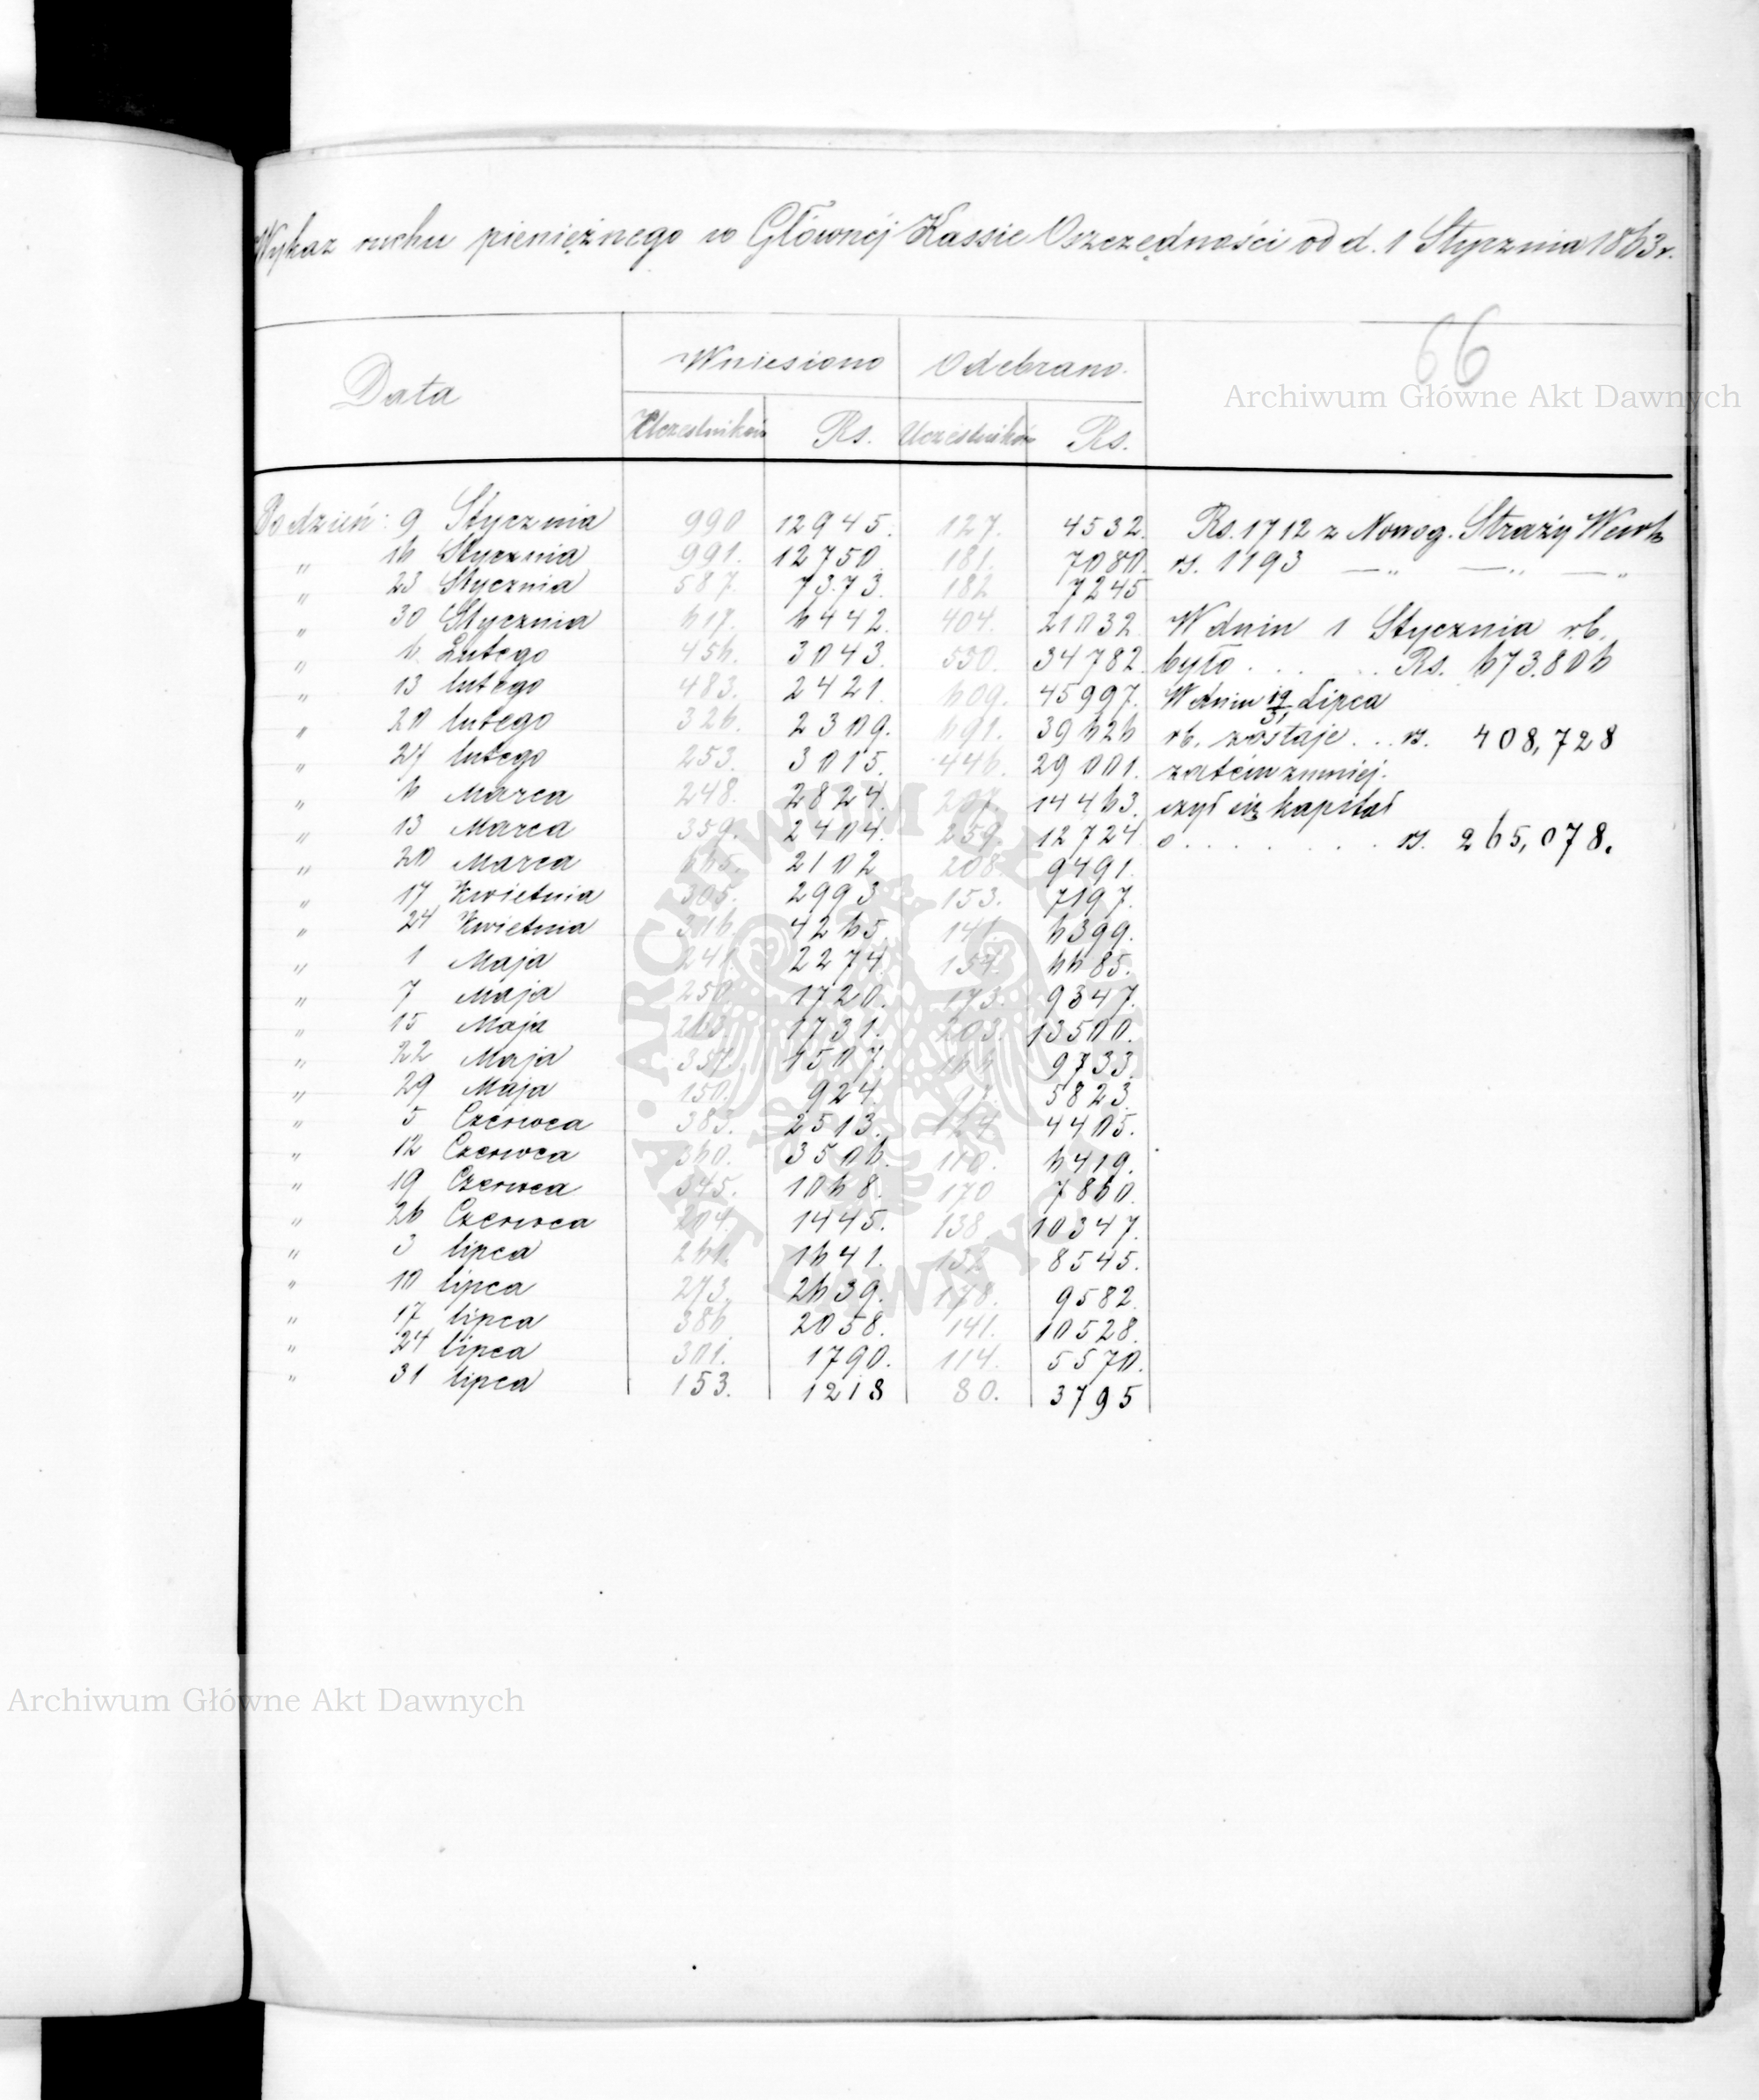 Wykaz ruchu pieniężnego w Głównéj Kassie Oszczędności od d. 1 Stycznia 1863 r.
66
Archiwum Główne Akt Dawnych
Data Wniesiono Odebrano.
Uczestników Rs. Uczestników Rs.
Po dzień: 9 Stycznia 990 12945. 127. 4532. Rs. 1712 z Nowog. Straży
" 16 Stycznia 991. 12750 181. 7080. rs. 1193 — " — " — "
" 23 Stycznia 587. 7373. 182 7245
" 30 Stycznia 617. 6442. 404. 21032 W dniu 1 Stycznia r.b.
" 6 Lutego 456. 3043. 550. 34782. było . . . . . Rs. 673.806
" 13 lutego 483. 2421. 609. 45997. W dniu 19/31 Lipca
" 20 lutego 326. 2309. 691. 39626 rb. zostaje . . . rs. 408,728
" 27 lutego 253. 3015. 446. 29001. zatém zmniej-
" 6 Marca 248. 2824. 207. 14463. szył się kapitał
" 13 Marca 359. 2404. 259. 12724 o . . . . . . . rs. 265,078.
" 20 Marca 2102 208 9491.
" 17 Kwietnia 305. 2993 153. 7197.
" 24 Kwietnia 316 4265. 141. 6399.
" 1 Maja 241. 2274. 154. 6685.
" 7 Maja 250. 1720. 173. 9347.
" 15 Maja 1731. 203. 13500.
" 22 Maja 357. 1507. 9733.
" 29 Maja 150. 924. 5823.
" 5 Czerwca 385. 2513. 4405.
" 12 Czerwca 360. 3506. 110. 6419.
" 19 Czerwca 345. 1068. 170 7860.
" 26 Czerwca 204. 1445. 138. 10347.
" 3 lipca 261. 1641. 132 8545.
" 10 lipca 273. 2639. 138. 9582.
" 17 lipca 386. 2058. 141. 10528.
" 24 lipca 301. 1790. 114. 5570.
" 31 lipca 153. 1218 80. 3795
Archiwum Główne Akt Dawnych